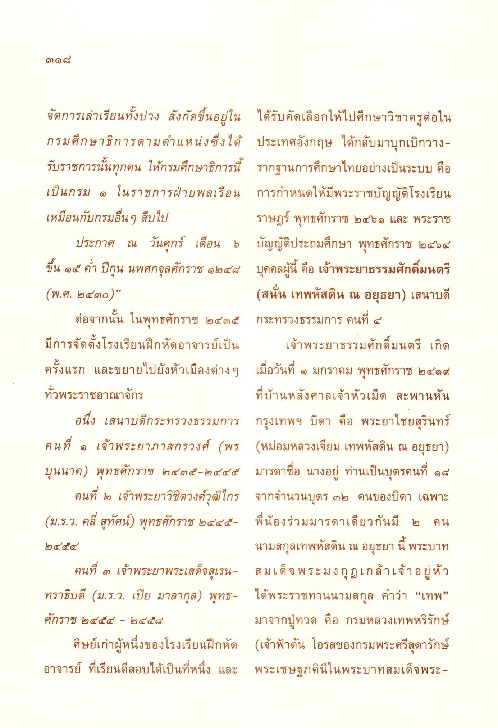 ๓๑๘
จัดการเล่าเรียนทั้งปวง สังกัดขึ้นอยู่ใน
กรมศึกษาธิการตามตำแหน่งซึ่งได้
รับราชการนั้นทุกคน ให้กรมศึกษาธิการนี้
เป็นกรม ๑ ในราชการฝ่ายพลเรือน
เหมือนกับกรมอื่นๆ สืบไป
ประกาศ ณ วันศุกร์ เดือน ๖
ขึ้น ๑๕ ค่ำ ปีกุน นพศกจุลศักราช ๑๒๔๘
(พ.ศ. ๒๔๓๐)”
ต่อจากนั้น ในพุทธศักราช ๒๔๓๕
มีการจัดตั้งโรงเรียนฝึกหัดอาจารย์เป็น
ครั้งแรก และขยายไปยังหัวเมืองต่างๆ
ทั่วพระราชอาณาจักร
อนึ่ง เสนาบดีกระทรวงธรรมการ
คนที่ ๑ เจ้าพระยาภาสกรวงศ์ (พร
บุนนาค) พุทธศักราช ๒๔๓๕-๒๔๔๕
คนที่ ๒ เจ้าพระยาวิชิตวงศ์วุฒิไกร
(ม.ร.ว. คลี่ สุทัศน์) พุทธศักราช ๒๔๔๕-
๒๔๕๔
คนที่ ๓ เจ้าพระยาพระเสด็จสุเรน-
ทราธิบดี (ม.ร.ว. เปีย มาลากุล) พุทธ-
ศักราช ๒๔๕๔ - ๒๔๕๘
ศิษย์เก่าผู้หนึ่งของโรงเรียนฝึกหัด
อาจารย์ ที่เรียนดีสอบได้เป็นที่หนึ่ง และ
ได้รับคัดเลือกให้ไปศึกษาวิชาครูต่อใน
ประเทศอังกฤษ ได้กลับมาบุกเบิกวาง-
รากฐานการศึกษาไทยอย่างเป็นระบบ คือ
การกำหนดให้มีพระราชบัญญัติโรงเรียน
ราษฎร์ พุทธศักราช ๒๔๖๑ และ พระราช
บัญญัติประถมศึกษา พุทธศักราช ๒๔๖๔
บุคคลผู้นี้ คือ เจ้าพระยาธรรมศักดิ์มนตรี
(สนั่น เทพหัสดิน ณ อยุธยา) เสนาบดี
กระทรวงธรรมการ คนที่ ๔
เจ้าพระยาธรรมศักดิ์มนตรี เกิด
เมื่อวันที่ ๑ มกราคม พุทธศักราช ๒๔๑๙
ที่บ้านหลังศาลเจ้าหัวเม็ด สะพานหัน
กรุงเทพฯ บิดา คือ พระยาไชยสุรินทร์
(หม่อมหลวงเจียม เทพหัสดิน ณ อยุธยา)
มารดาชื่อ นางอยู่ ท่านเป็นบุตรคนที่ ๑๘
จากจำนวนบุตร ๓๒ คนของบิดา เฉพาะ
พี่น้องร่วมมารดาเดียวกันมี ๒ คน
นามสกุลเทพหัสดิน ณ อยุธยา นี้ พระบาท
สมเด็จพระมงกุฎเกล้าเจ้าอยู่หัว
ได้พระราชทานนามสกุล คำว่า “เทพ”
มาจากปู่ทวด คือ กรมหลวงเทพหริรักษ์
(เจ้าฟ้าตัน โอรสของกรมพระศรีสุดารักษ์
พระเชษฐภคินีในพระบาทสมเด็จพระ-